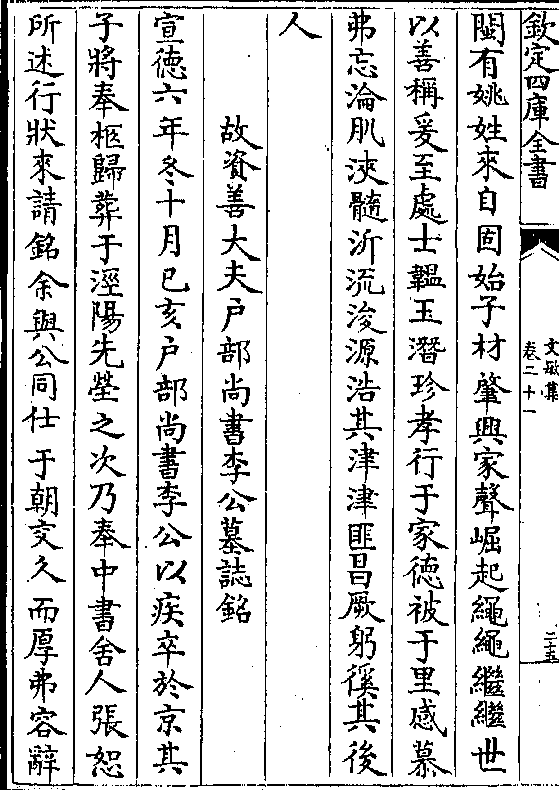 欽定四庫全書
文敏集
卷二十一
二十五
閩有姚姓來自固始子材肇興家聲崛起繩繩繼繼世
以善稱爰至處士韞玉潛珍孝行于家德被于里感慕
弗忘淪肌浹髓沂流浚源浩其津津匪昌厥躬徯其後
人
故資善大夫户部尚書李公墓誌銘
宣徳六年冬十月已亥户部尚書李公以疾卒於京其
子將奉柩歸葬于涇陽先塋之次乃奉中書舍人張恕
所述行狀來請銘余與公同仕于朝交久而厚弗容辭